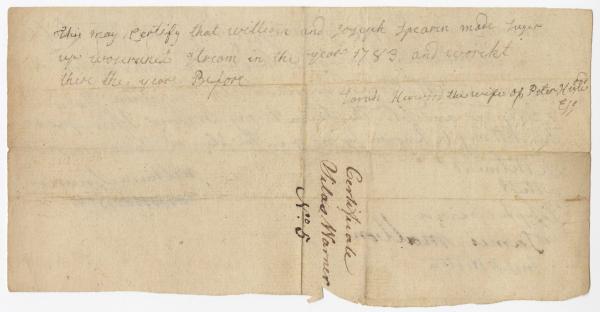 This may Certify that william and Joseph Spearin made Suger
up stream in the year 1783 and workt
there the year Before
Sarah the wife of Peter
Esq
Certificate
Silas Warner
No. 5